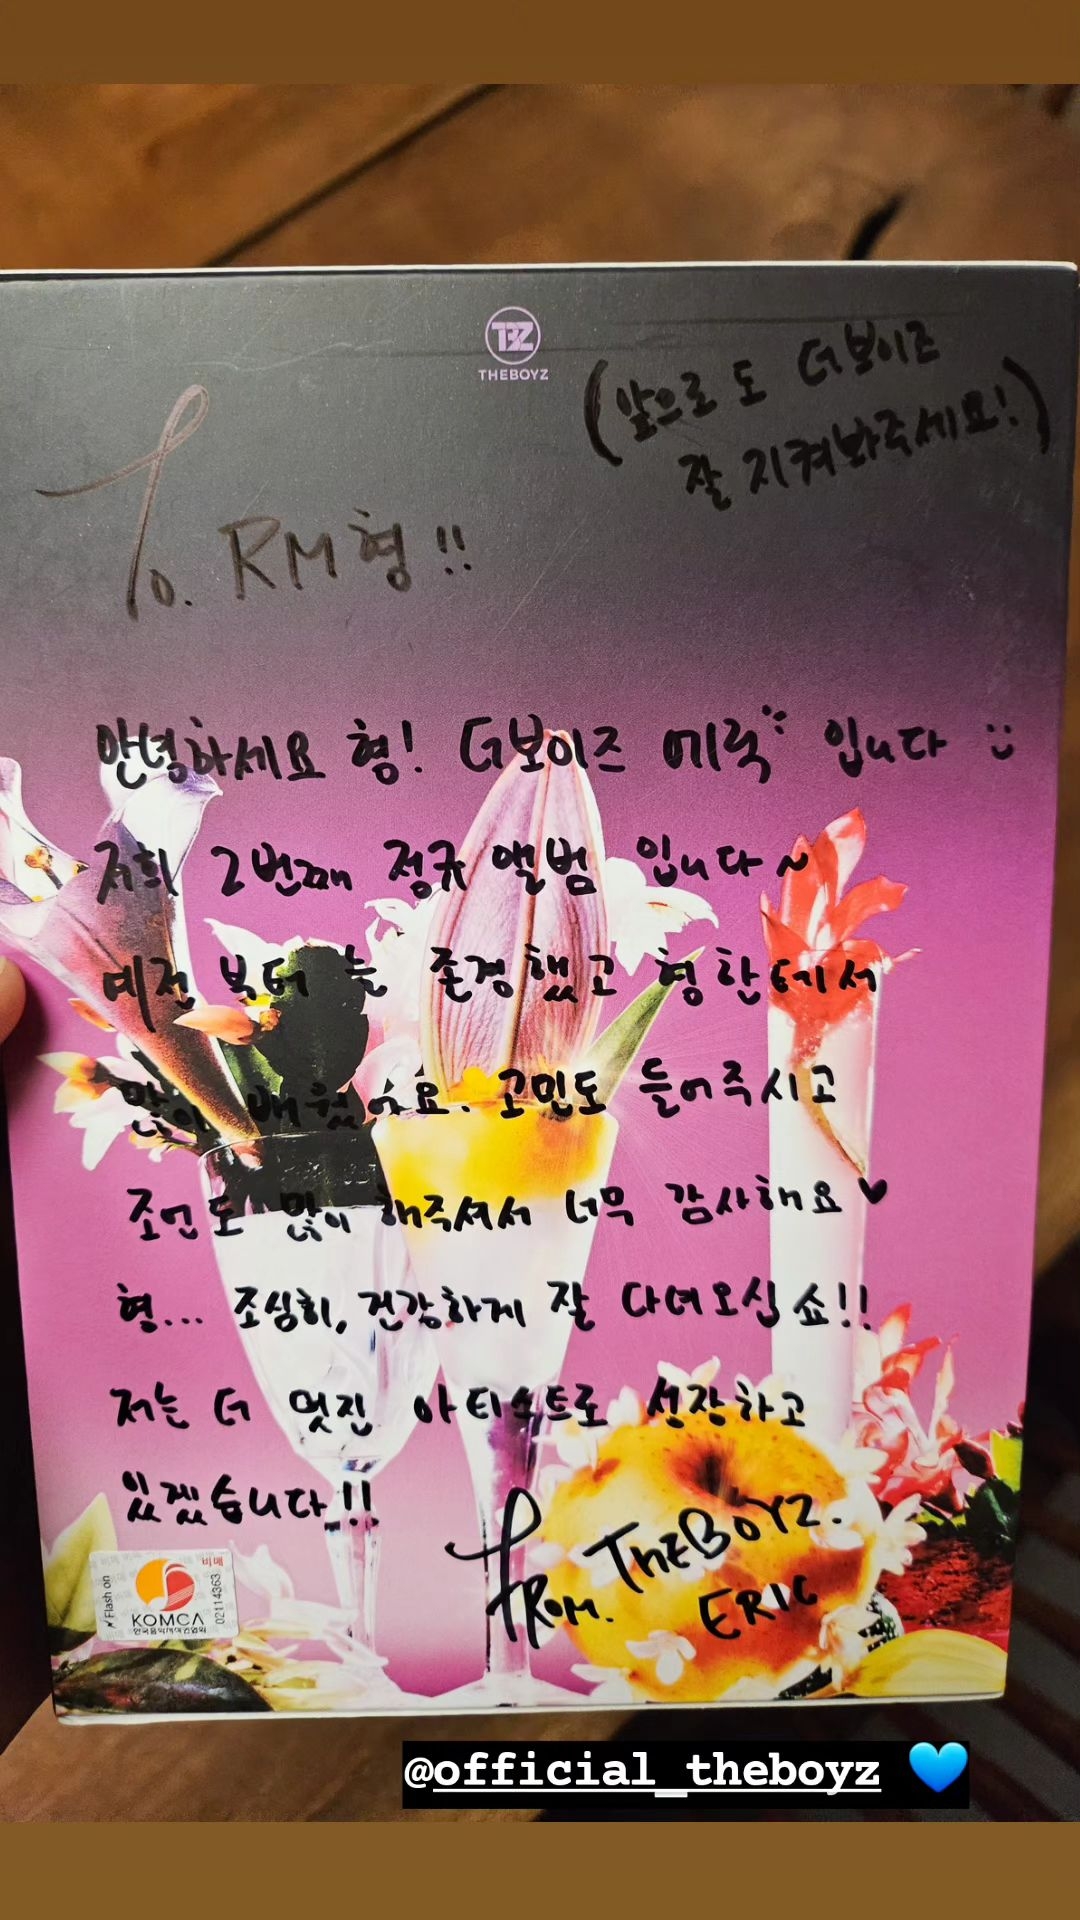 TBZ
THEBOYZ
(앞으로도 더보이즈
잘 지켜봐주세요!)
To. RM형!!
안녕하세요 형! 더보이즈 에릭 입니다 :)
저희 2번째 정규 앨범 입니다~
예전 부터 늘 존경했고 형한테서
많이 배웠어요. 고민도 들어주시고
조언도 많이 해주셔서 너무 감사해요♥
형... 조심히, 건강하게 잘 다녀오십쇼!!
저는 더 멋진 아티스트로 성장하고
있겠습니다!!
From. THEBOYZ.
ERIC
Flash on
비매
KOMCA
한국음악저작권협회
02114363
@official_theboyz 💙